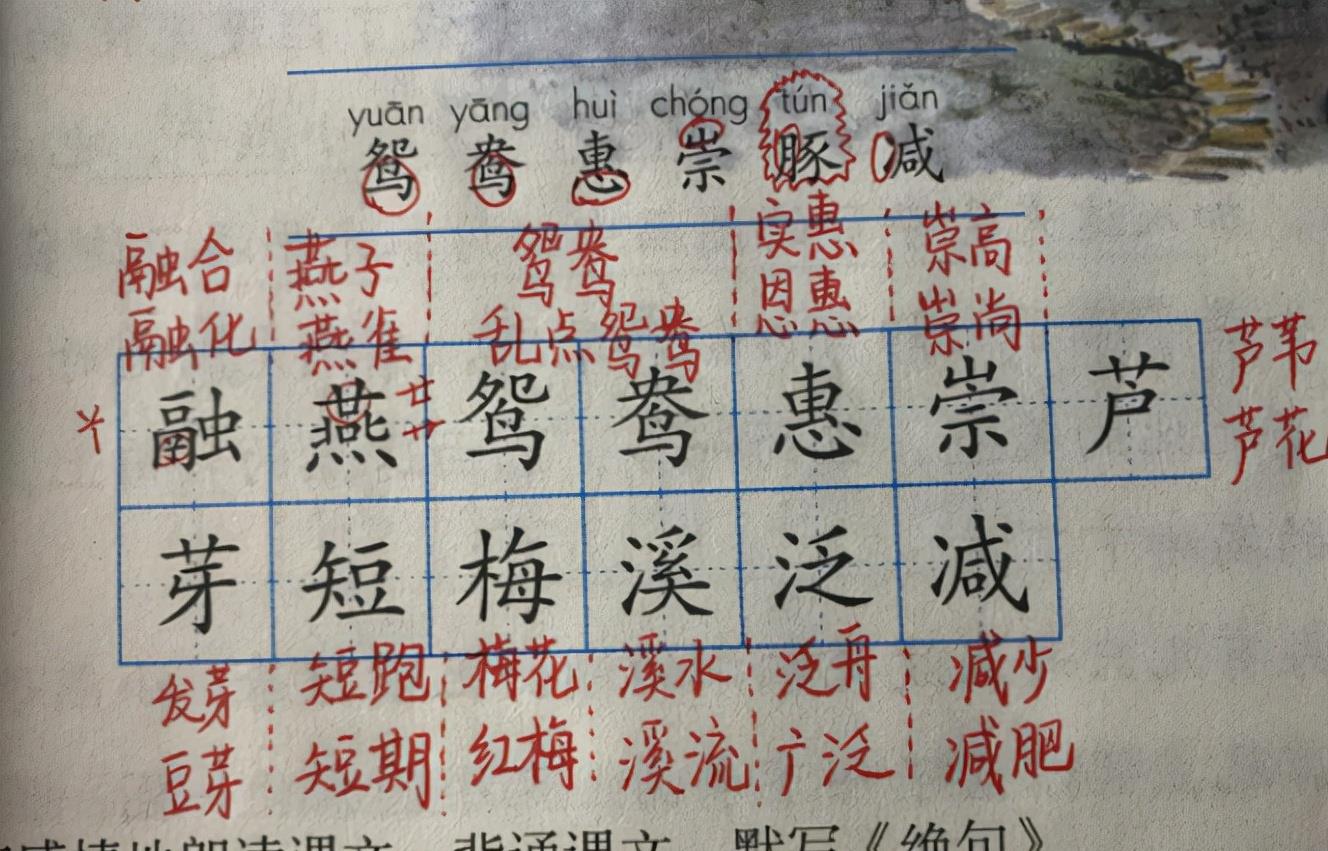 yuān yāng huì chóng tún jiǎn
鸳 鸯 惠 崇 豚 减
融合 燕子 鸳鸯 实惠 崇高
融化 燕雀 乱点鸳鸯 恩惠 崇尚
融 燕 鸳 鸯 惠 崇 芦
芦苇
芦花
芽 短 梅 溪 泛 减
发芽 短跑 梅花 溪水 泛舟 减少
豆芽 短期 红梅 溪流 广泛 减肥
感情地朗读课文。背诵课文。默写《绝句》